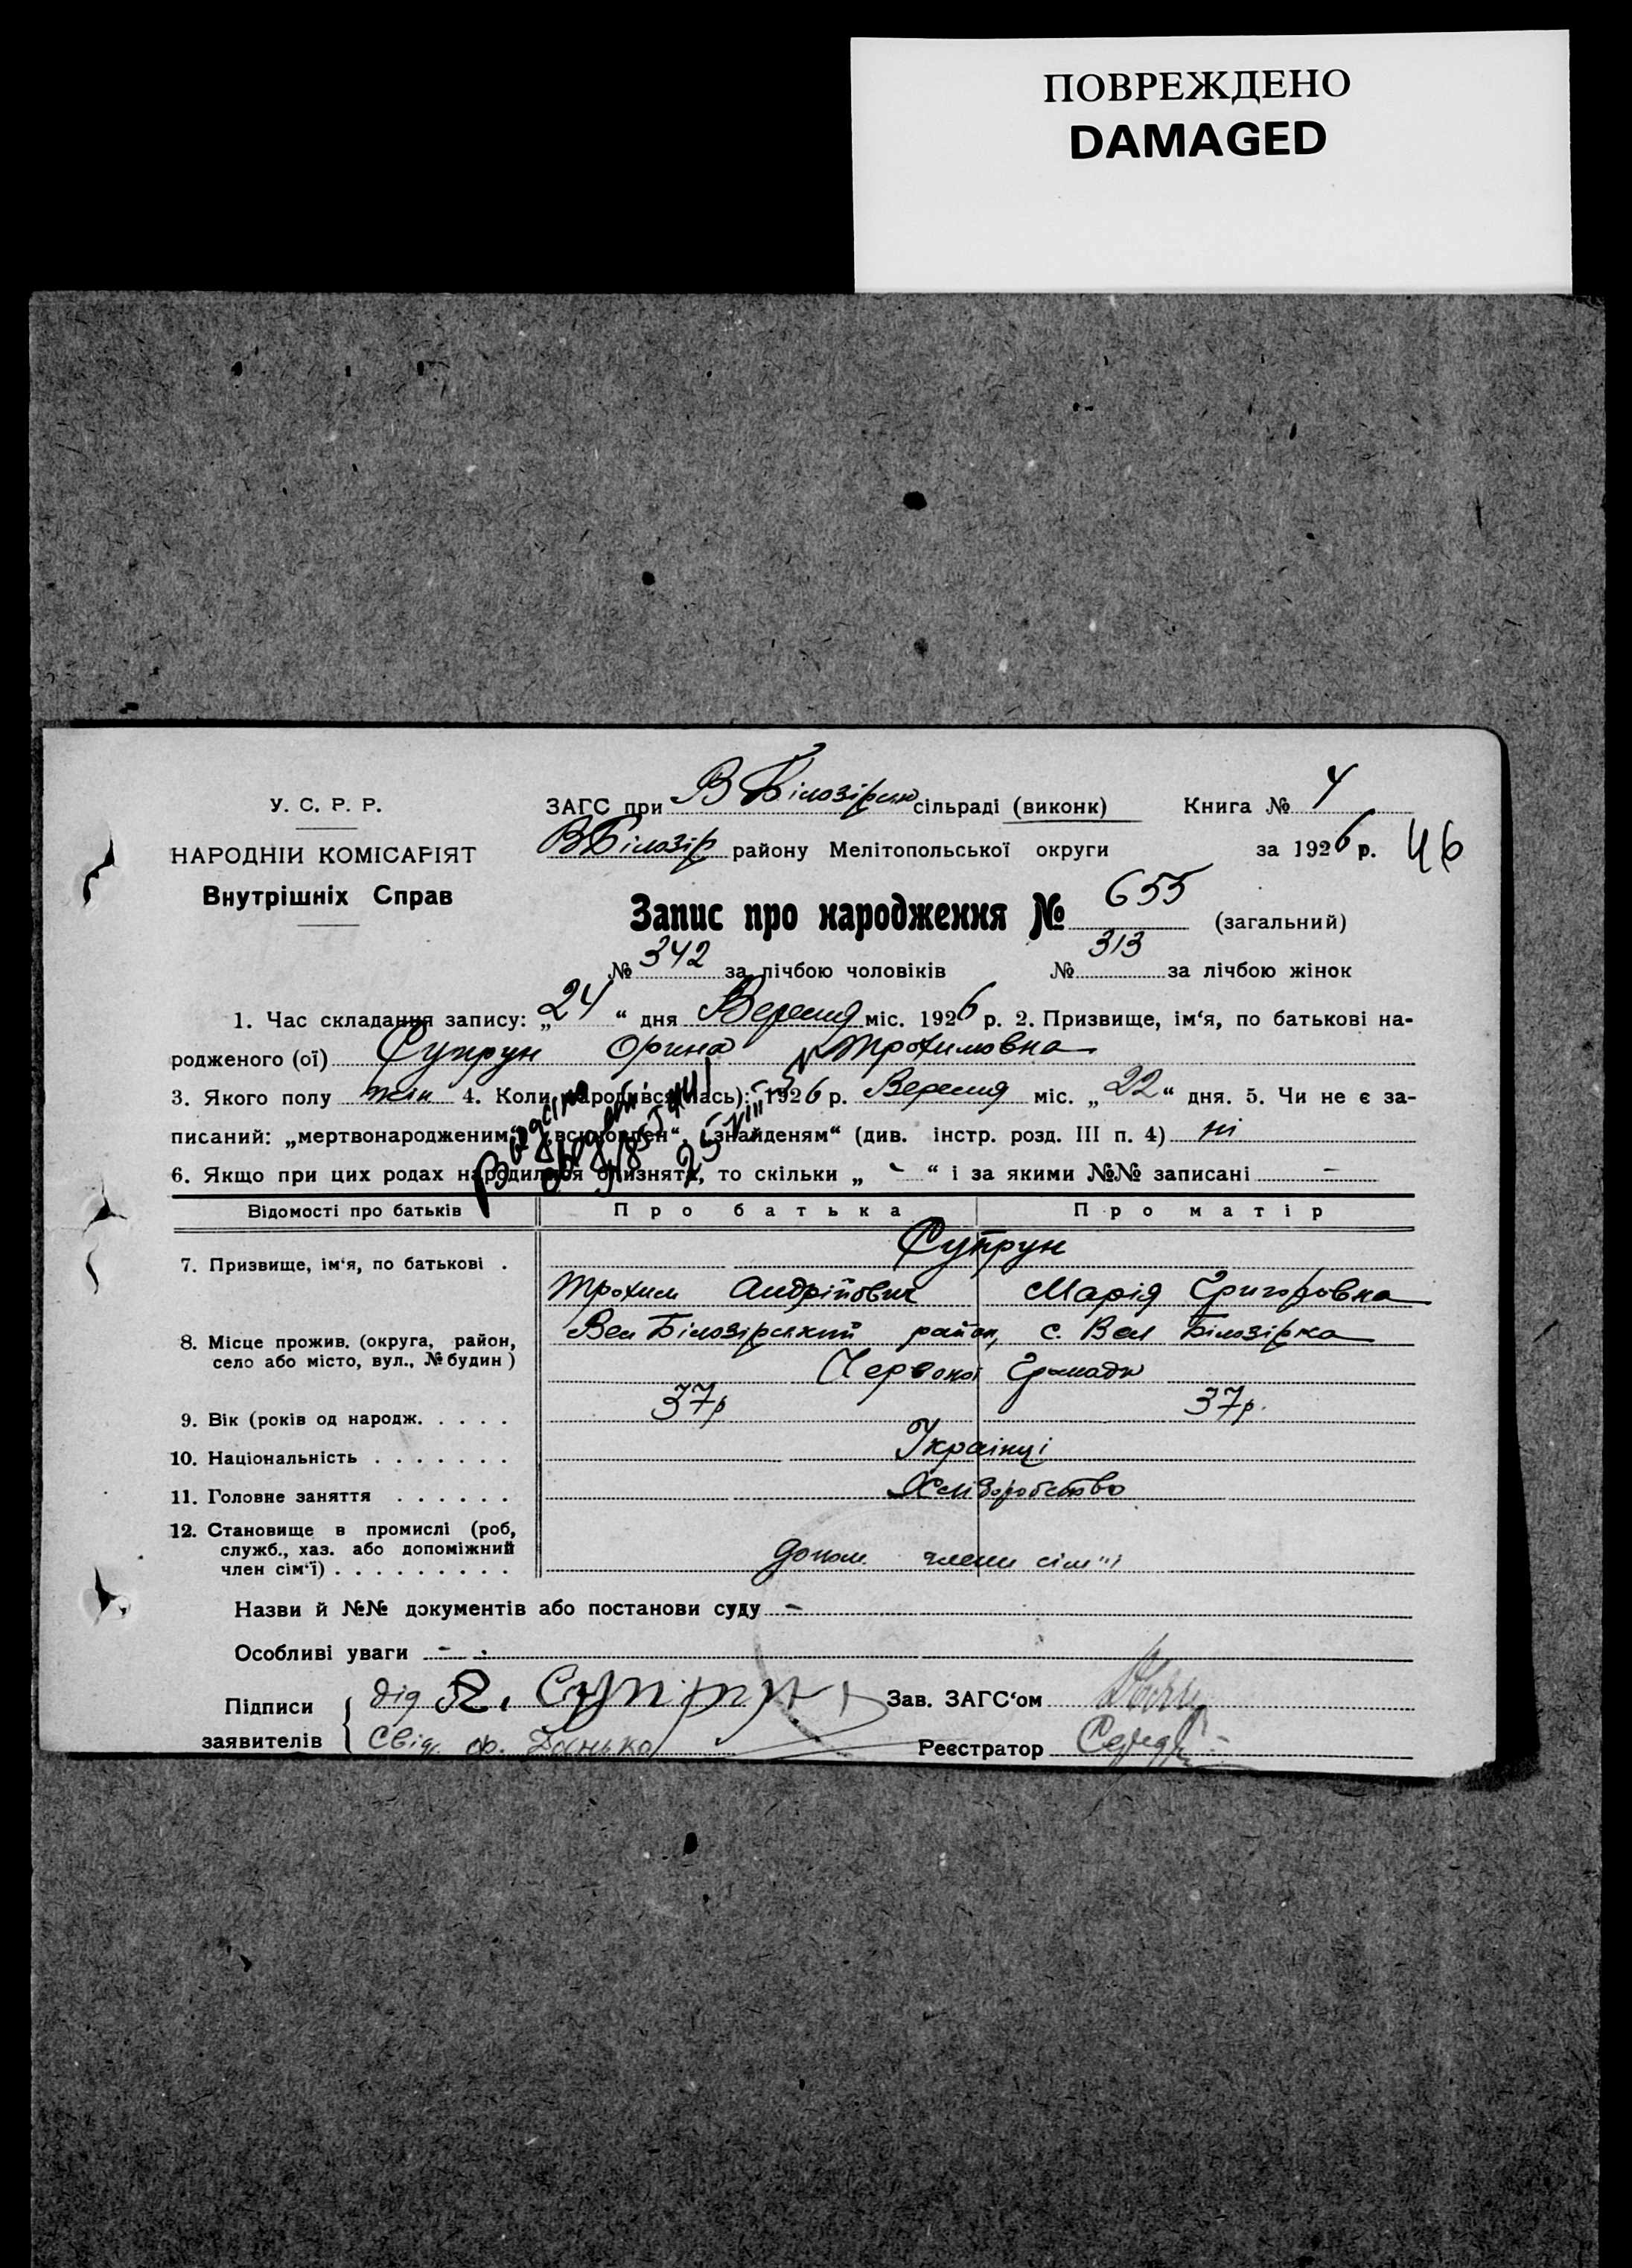 ПОВРЕЖДЕНО
DAMAGED
У. С. Р. Р.
НАРОДНІЙ КОМІСАРІЯТ
Внутрішніх Справ
ЗАГС при В Білозірськ сільраді (виконк) Книга № 4
ВБілозір району Мелітопольської округи за 1926 р. 46
Запис про народження № 655 (загальний)
№ 342 за лічбою чоловіків № 313 за лічбою жінок
1. Час складання запису: „24“ дня Вересня міс. 1926 р. 2. Призвище, ім‘я, по батькові на-
родженого (ої) Супрун Орина Трохимовна
3. Якого полу жін 4. Коли народився (лась): 1926 р. Вересня міс. „22“ дня. 5. Чи не є за-
писаний: „мертвонародженим“, „знайденям“ (див. інстр. розд. III п. 4) ні
6. Якщо при цих родах народилися близнята, то скільки „-“ і за якими №№ записані -
Відомості про батьків Про батька Про матір
7. Призвище, ім‘я, по батькові . Супрун
Трохим Андрійович Марія Григоровна
8. Місце прожив. (округа, район, село або місто, вул., № будин) Вел Білозірський район, с. Вел Білозірка
Червоної Громади
9. Вік (років од народж. . . . . 37р 37р.
10. Національність . . . . . . . Українці
11. Головне заняття . . . . . . Хліборобство
12. Становище в промислі (роб, служб., хаз. або допоміжний член сім‘ї) . . . . . . . . . допом. члени сім"ї
Назви й №№ документів або постанови суду -
Особливі уваги -
Підписи заявителів { дід Я. Супрун Зав. ЗАГС‘ом
Свід. ф. Донько Реєстратор